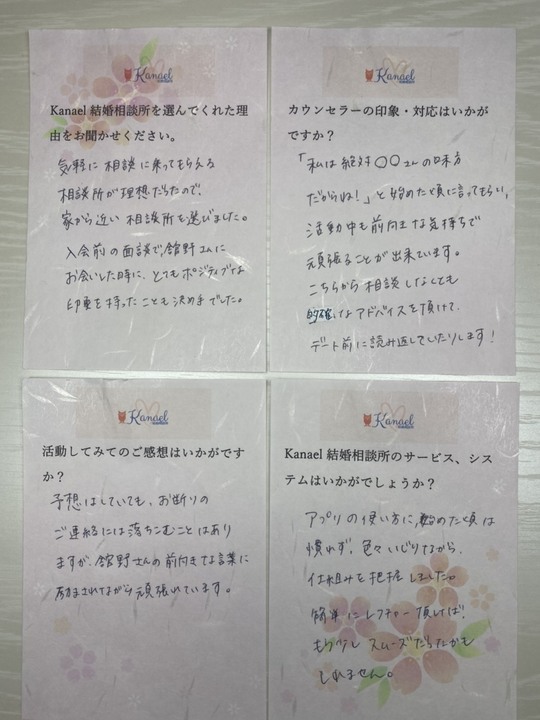 Kanael
Kanael 結婚相談所を選んでくれた理
由をお聞かせください。
気軽に相談に乗ってもらえる
相談所が理想だったので、
家から近い相談所を選びました。
入会前の面談で、舘野さんに
お会いした時に、とてもポジティブな
印象を持ったことも決め手でした。
Kanael
カウンセラーの印象・対応はいかが
ですか？
「私は絶対〇〇さんの味方
だからね！」と始めた頃に言ってもらい、
活動中も前向きな気持ちで
頑張ることが出来ています。
こちらから相談しなくても
的確なアドバイスを頂けて、
デート前に読み返していたりします！
Kanael
活動してみてのご感想はいかがです
か？
予想はしていても、お断りの
ご連絡には落ちこむことはあり
ますが、舘野さんの前向きな言葉に
励まされながら頑張れています。
Kanael
Kanael 結婚相談所のサービス、シス
テムはいかがでしょうか？
アプリの使い方に、始めた頃は
慣れず、色々いじりながら、
仕組みを把握しました。
簡単にレクチャー頂ければ、
もう少しスムーズだったかも
しれません。